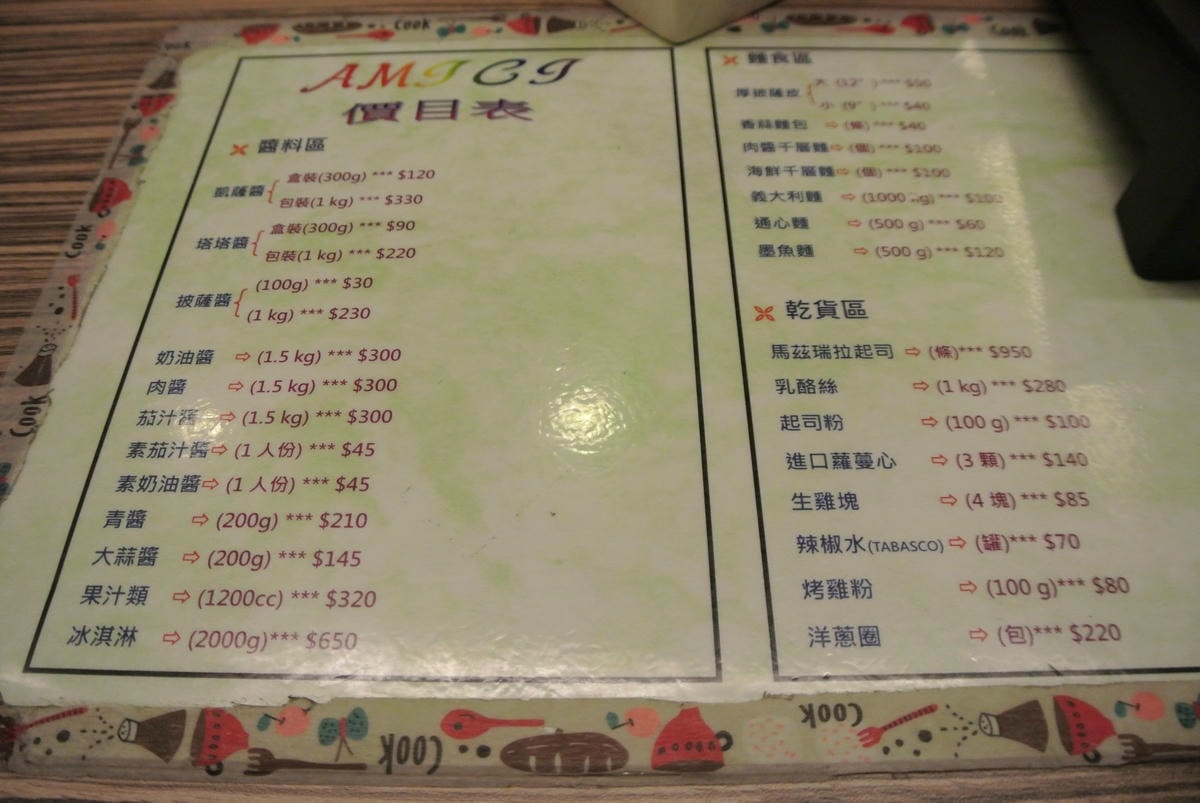 AMICI
價目表
醬料區
凱薩醬
盒裝(300g) *** $120
包裝(1 kg) *** $330
塔塔醬
盒裝(300g) *** $90
包裝(1 kg) *** $220
披薩醬
(100g) *** $30
(1 kg) *** $230
奶油醬 ⇨ (1.5 kg) *** $300
肉醬 ⇨ (1.5 kg) *** $300
茄汁醬 ⇨ (1.5 kg) *** $300
素茄汁醬⇨ (1 人份) *** $45
素奶油醬⇨ (1 人份) *** $45
青醬 ⇨ (200g) *** $210
大蒜醬 ⇨ (200g) *** $145
果汁類 ⇨ (1200cc) *** $320
冰淇淋 ⇨ (2000g)*** $650
麵食區
厚披薩皮
大 (12" ) *** $50
小 (9" ) *** $40
香蒜麵包 ⇨ (條) *** $40
肉醬千層麵⇨ (個) *** $100
海鮮千層麵⇨ (個) *** $100
義大利麵 ⇨ (1000 g) ***
通心麵 ⇨ (500 g) *** $60
墨魚麵 ⇨ (500 g) *** $120
乾貨區
馬茲瑞拉起司 ⇨ (條)*** $950
乳酪絲 ⇨ (1 kg) *** $280
起司粉 ⇨ (100 g) *** $100
進口蘿蔓心 ⇨ (3 顆) *** $140
生雞塊 ⇨ (4 塊) *** $85
辣椒水(TABASCO) ⇨ (罐)*** $70
烤雞粉 ⇨ (100 g)*** $80
洋蔥圈 ⇨ (包)*** $220
Cook
Cook
Cook
Cook
Cook
Cook